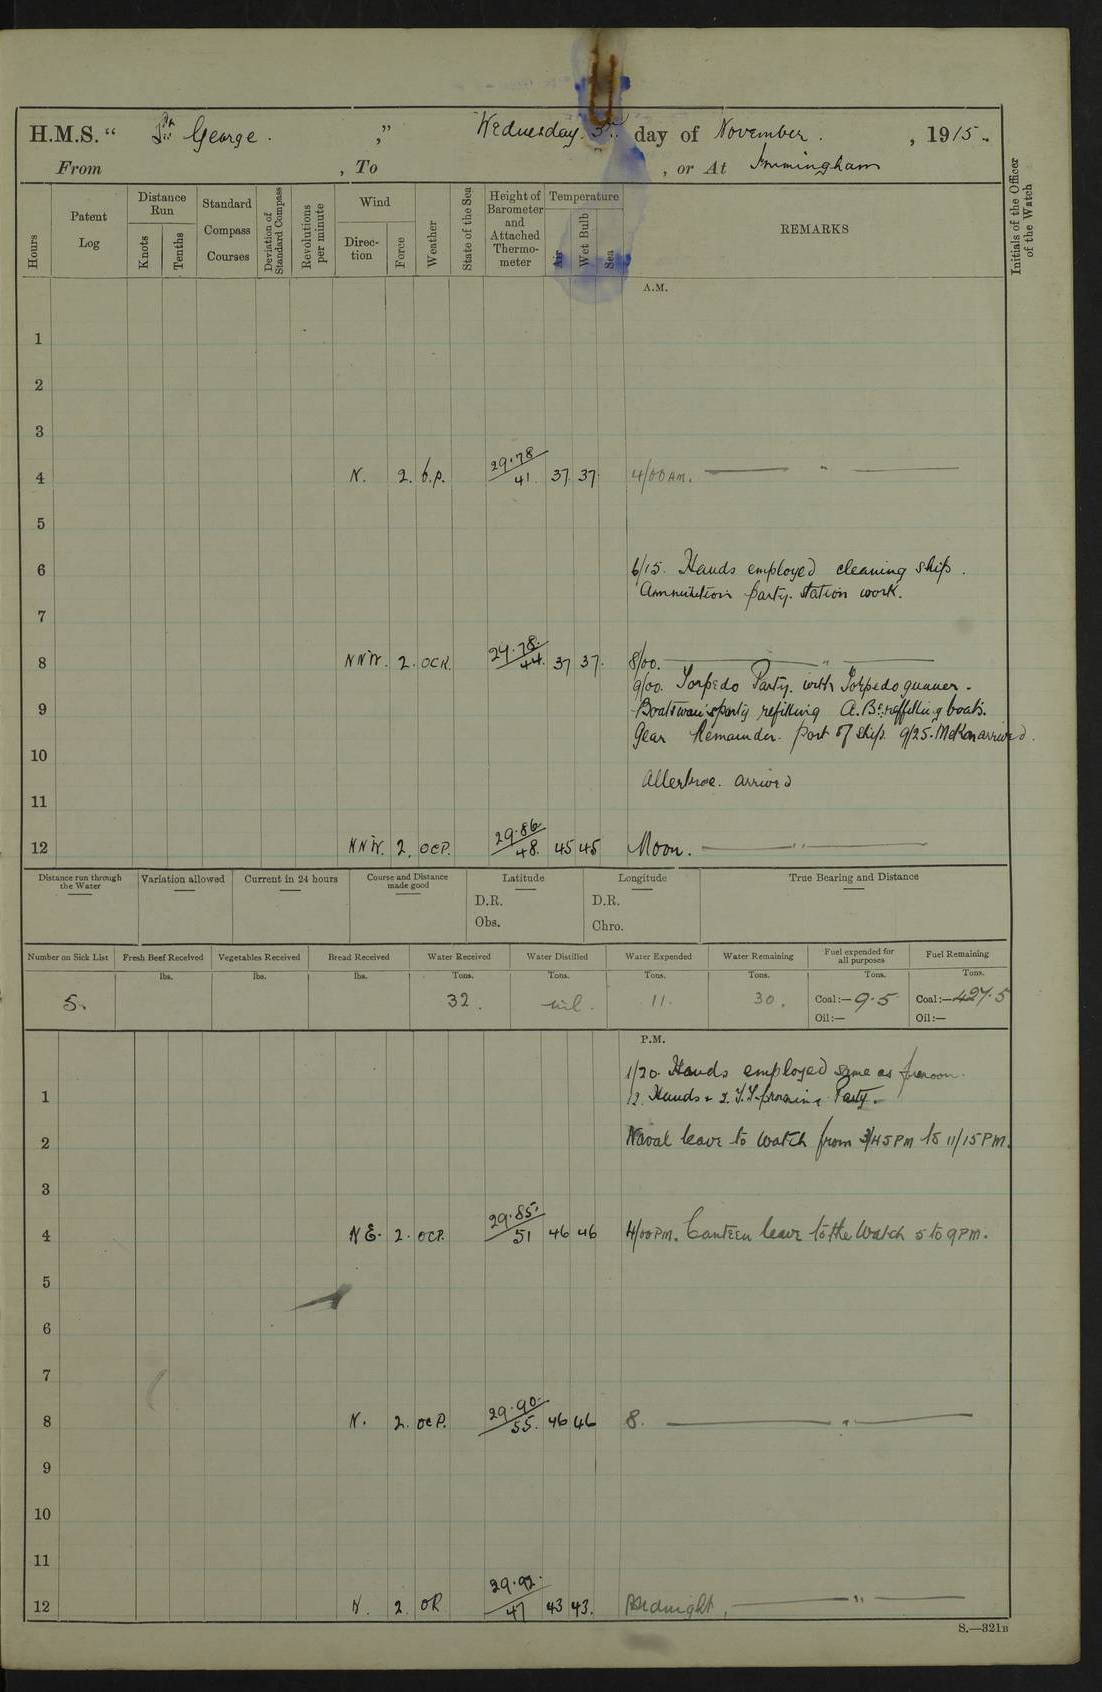 H.M.S. " St. George. ," Wednesday. 3rd day of November. , 1915.
From , To , or At Immingham
Hours
Patent Log
Distance Run
Knots
Tenths
Standard Compass Courses
Deviation of Standard Compass
Revolutions per minute
Wind
Direction
Force
Weather
State of the Sea
Height of Barometer and Attached Thermometer
Temperature
Air
Wet Bulb
Sea
REMARKS
Initials of the Officer of the Watch
A.M.
1
2
3
4 N. 2. b.p. 29.78/41. 37 37. 4/00 AM. — " —
5
6 6/15. Hands employed cleaning ship.
Ammunition party. station work.
7
8 NNW. 2. OCR. 29.78./44. 37 37. 8/00. — " —
9/00. Torpedo Party. with Torpedo gunner.
9 Boatswain's party refitting A.Bs. refitting boats.
Gear Remainder. part of ship. 9/25. arrived.
10
arrived
11
12 NNW. 2. OCP. 29.86/48. 45 45 Noon. — " —
Distance run through the Water
Variation allowed
Current in 24 hours
Course and Distance made good
Latitude
D.R.
Obs.
Longitude
D.R.
Chro.
True Bearing and Distance
Number on Sick List
Fresh Beef Received
Vegetables Received
Bread Received
Water Received
Water Distilled
Water Expended
Water Remaining
Fuel expended for all purposes
Fuel Remaining
lbs. lbs. lbs. Tons. Tons. Tons. Tons. Tons. Tons.
5. 32. nil. 11. 30. Coal:— 9.5 Coal:— 427.5
Oil:— Oil:—
P.M.
1/20. Hands employed same as forenoon.
1 12. Hands & 2. Party.
2 Naval leave to watch from 3/45 PM to 11/15 PM.
3
4 NE. 2. OCP. 29.85./51 46 46 4/00 PM. Canteen leave to the Watch 5 to 9 PM.
5
6
7
8 N. 2. OCP. 29.90./55. 46 46 8. — " —
9
10
11
12 N. 2. OR 29.92./47 43 43. Midnight, — " —
S.—321B